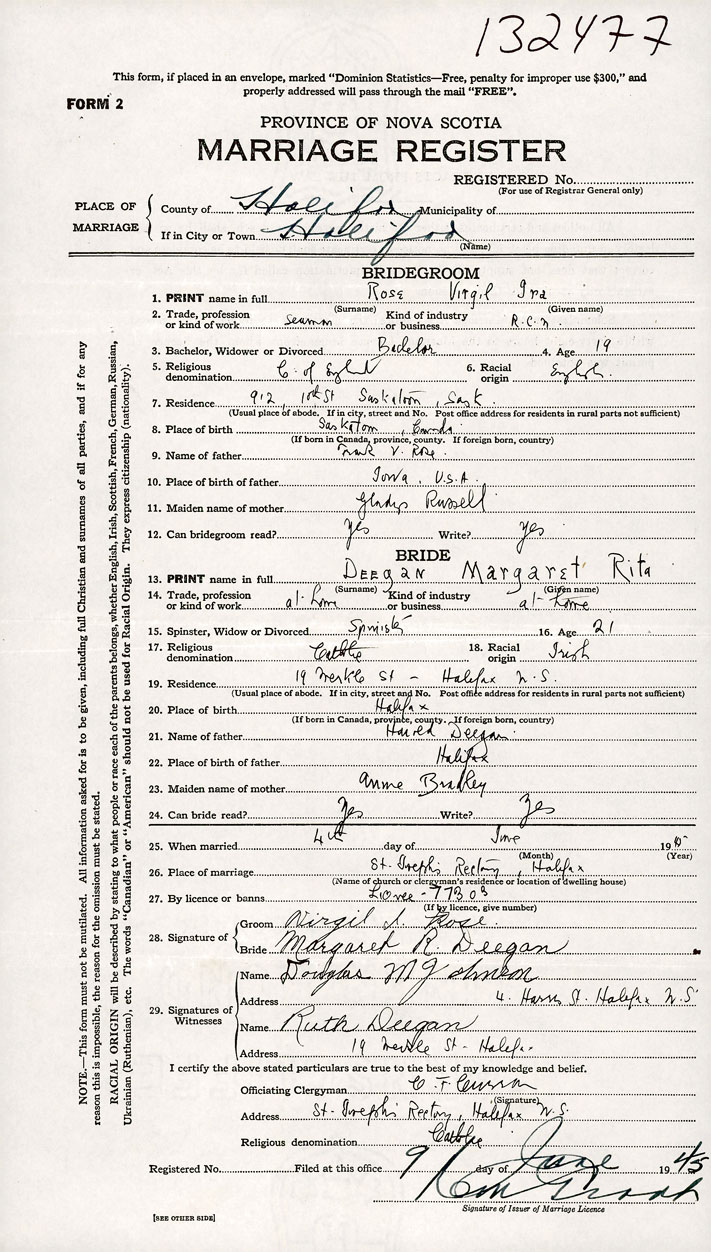 132477
This form, if placed in an envelope, marked "Dominion Statistics—Free, penalty for improper use $300," and
properly addressed will pass through the mail "FREE".
FORM 2
PROVINCE OF NOVA SCOTIA
MARRIAGE REGISTER
REGISTERED No.
(For use of Registrar General only)
PLACE OF MARRIAGE
County of Halifax Municipality of
If in City or Town Halifax
(Name)
BRIDEGROOM
1. PRINT name in full Rose Virgil Ira
(Surname) (Given name)
2. Trade, profession or kind of work Seaman Kind of industry or business R.C.N.
3. Bachelor, Widower or Divorced Bachelor 4. Age 19
5. Religious denomination C. of England 6. Racial origin English
7. Residence 912, 10th St Saskatoon, Sask.
(Usual place of abode. If in city, street and No. Post office address for residents in rural parts not sufficient)
8. Place of birth Saskatoon, Canada
(If born in Canada, province, county. If foreign born, country)
9. Name of father Frank V. Rose
10. Place of birth of father Iowa, U.S.A.
11. Maiden name of mother Gladys Russell
12. Can bridegroom read? Yes Write? Yes
BRIDE
13. PRINT name in full DEEGAN Margaret Rita
(Surname) (Given name)
14. Trade, profession or kind of work at-home Kind of industry or business at-home
15. Spinster, Widow or Divorced Spinster 16. Age 21
17. Religious denomination Catholic 18. Racial origin Irish
19. Residence 19 Merkle St - Halifax N.S.
(Usual place of abode. If in city, street and No. Post office address for residents in rural parts not sufficient)
20. Place of birth Halifax
(If born in Canada, province, county. If foreign born, country)
21. Name of father Harold Deegan
22. Place of birth of father Halifax
23. Maiden name of mother Annie Bradley
24. Can bride read? Yes Write? Yes
25. When married 4th day of June 1945
(Month) (Year)
26. Place of marriage St. Joseph's Rectory, Halifax
(Name of church or clergyman's residence or location of dwelling house)
27. By licence or banns Licence - 77303
(If by licence, give number)
28. Signature of
Groom Virgil I. Rose
Bride Margaret R. Deegan
29. Signatures of Witnesses
Name Douglas M Johnson
Address 4. Harris St. Halifax N.S.
Name Ruth Deegan
Address 19 Merkle St - Halifax
I certify the above stated particulars are true to the best of my knowledge and belief.
Officiating Clergyman C. F. Curran
(Signature)
Address St. Joseph's Rectory, Halifax N.S.
Religious denomination Catholic
Registered No. Filed at this office 9 day of June 1945
Signature of Issuer of Marriage Licence
[SEE OTHER SIDE]
NOTE.—This form must not be mutilated. All information asked for is to be given, including full Christian and surnames of all parties, and if for any
reason this is impossible, the reason for the omission must be stated.
RACIAL ORIGIN will be described by stating to what people or race each of the parents belongs, whether English, Irish, Scottish, French, German, Russian,
Ukrainian (Ruthenian), etc. The words "Canadian" or "American" should not be used for Racial Origin. They express citizenship (nationality).